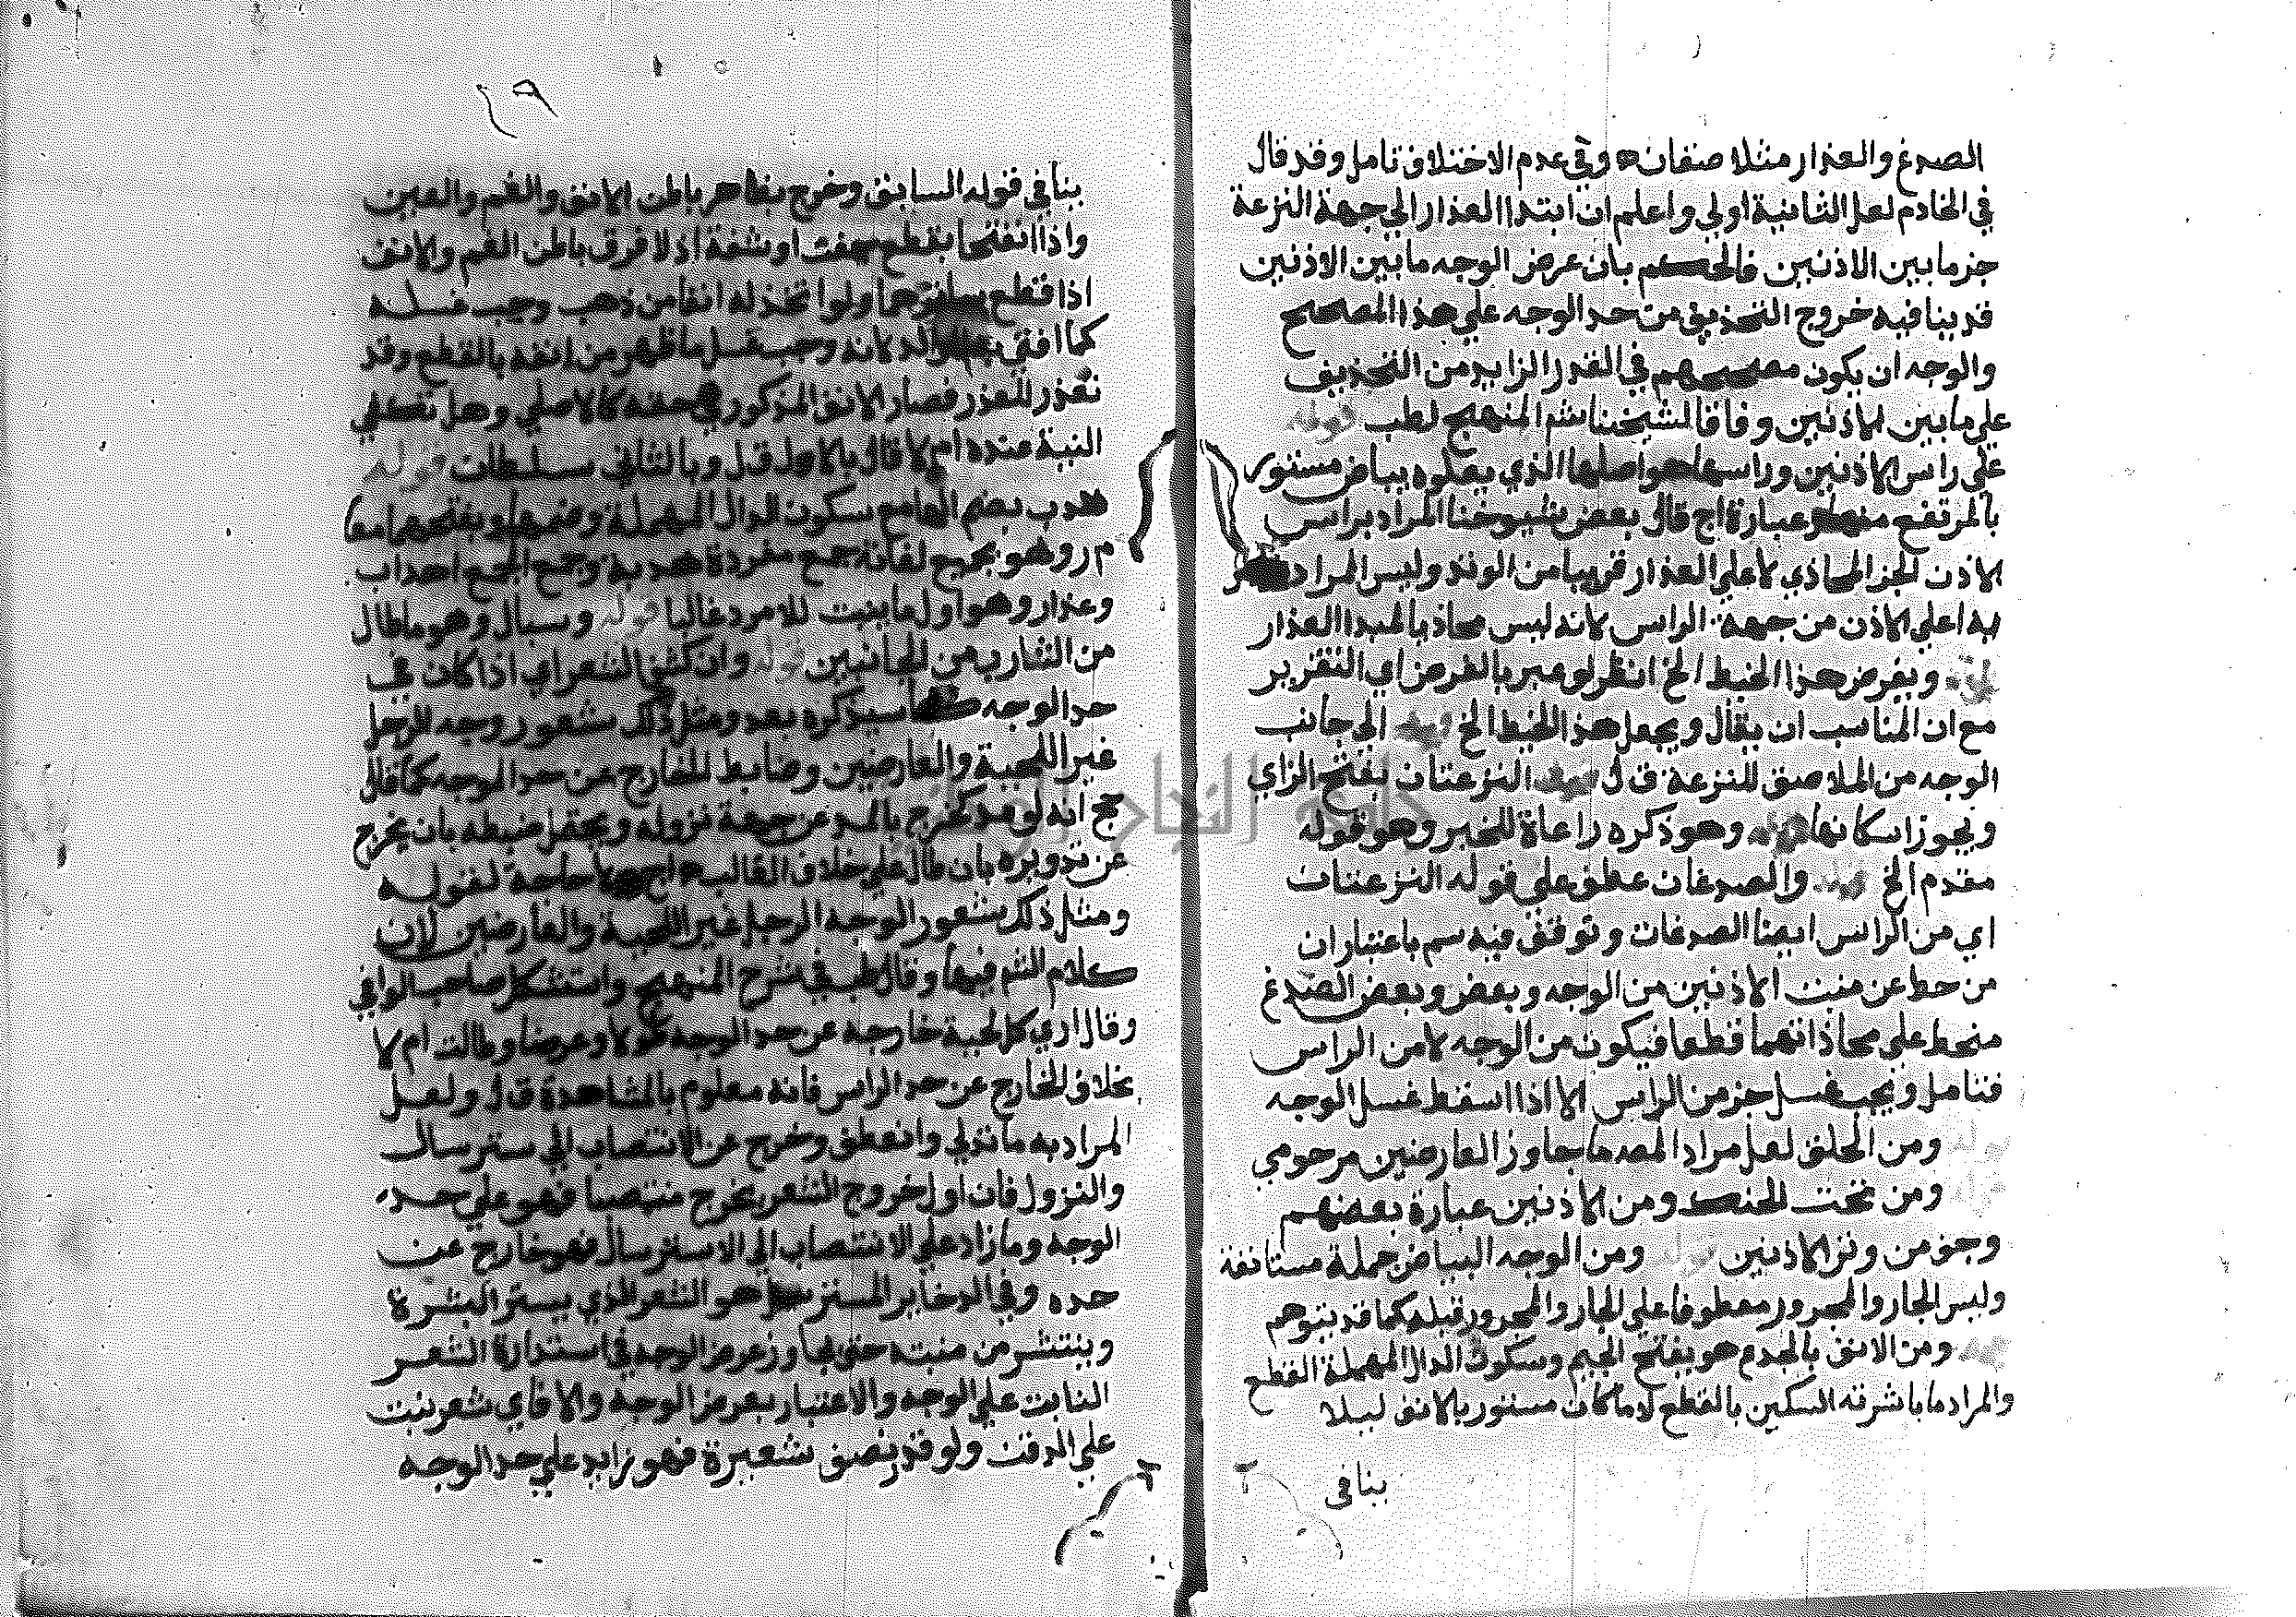 الصدغ والعذار مثلا صنفان وفي عدم الاختلاف تامل وقد قال
في الخادم لعل الثانية اولي واعلم ان ابتدا العذار الي جهة النزعة
جز ما بين الاذنين فالحكم بان عرض الوجه ما بين الاذنين
قد ينافيه خروج التحذيف من حد الوجه علي هذا المصحح
والوجه ان يكون في القدر الزايد من التحذيف
علي ما بين الاذنين وفاقا لشيخنا شم المنهج لطب قوله
علي راس الاذنين وراسها هو اصلها الذي يعلوه بياض مستور
بالمرتفع منها عبارة اج قال بعض شيوخنا المراد براس
الاذن الجز المحاذي لاعلي العذار قريبا من الوتد وليس المراد
به اعلي الاذن من جهة الراس لانه ليس محاذيا لمبدا العذار
قوله وبفرض هذا الخيط الخ انظر لو عبر بالفرض اي التقدير
مع ان المناسب ان يقال ويجعل هذا الخيط الخ قوله الي جانب
الوجه من الملاصق للنزعة ق ل قوله النزعتان بفتح الزاي
ويجوز اسكانها قوله وهو ذكره راعاة للخبر وهو قوله
مقدم الخ قوله والصدغان عطف علي قوله النزعتان
اي من الراس ايضا الصدغان وتوقف فيه سم باعتبار ان
من حط عن منبت الاذنين من الوجه وبعض وبعض الصدغ
منحط علي محاذاتهما قطعا فيكون من الوجه لا من الراس
فتامل ويجب غسل جز من الراس الا اذا سقط غسل الوجه
قوله ومن الحلق لعل مراد المصه ما جاوز العارضين مرحومي
قوله ومن تحت الحنك ومن الاذنين عبارة بعضهم
وجز من وتد الاذنين قوله ومن الوجه البياض جملة مستانفة
وليس الجار والمجرور معطوفا علي الجار والمجرور قبله كما قد يتوهم
قوله ومن الانف بالجدع هو بفتح الجيم وسكون الدال المهملة القطع
والمراد ما باشرته السكين بالقطع لا ما كان مستور بالانف ليلا
ينافي
١٩
ينافي قوله السابق وخرج بظاهر باطن الانف والفم والعين
واذا انفتحا بقطع جفن او شفة اذ لا فرق باطن الفم والانف
اذا قطع ساترهما ولو اتخذ له انفا من ذهب وجب غسله
كما افتي به الوالد لانه وجب غسل ما ظهر من انفه بالقطع وقد
تعذر للعذر فصار الانف المذكور في حقه كالاصلي وهل تكفي
النية عنده ام لا قال بالاول ق ل وبالثاني سلطان قوله
هدب بضم الها مع سكون الدال المهملة وضمها وبفتحهما معا
م ر وهو بجميع لغاته جمع مفرده هدبة وجمع الجمع اهداب
وعذار وهو اول ما ينبت للامرد غالبا قوله وسبال وهو ما طال
من الشارب من الجانبين قوله وان كثف الشعر اي اذا كان في
حد الوجه سيذكره بعد ومثل ذلك شعور وجه الرجل
غير اللحية والعارضين وضابط الخارج عن حد الوجه كما قال
حج انه لو مد لخرج بالمد عن جهة نزوله ويحتمل ضبطه بان يخرج
عن تدويره بان طال علي خلاف الغالب اج ولا حاجة لقوله
ومثل ذلك شعور الوجه الرجل غير اللحية والعارضين لان
كلام الشم فيها وقال طب في شرح المنهج واستشكل صاحب الوافي
وقال اري كل لحية خارجة عن حد الوجه طولا وعرضا وطالت ام لا
بخلاف الخارج عن حد الراس فانه معلوم بالمشاهدة ق ل ولعل
المراد به ما تدلي وانعطف وخرج عن الانتصاب الي استرسال
والنزول فان اول خروج الشعر يخرج منتصبا فهو علي حد
الوجه وما زاد علي الانتصاب الي الاسترسال فهو خارج عن
حده وفي الدخاير المسترسل هو الشعر الذي يستر البشرة
وينتشر من منبته حتي يجاوز عرض الوجه في استدارة الشعر
النابت علي الوجه والاعتبار بعرض الوجه والا فاي شعر نبت
علي الدقن ولو قدر نصف شعيرة فهو زايد علي حد الوجه